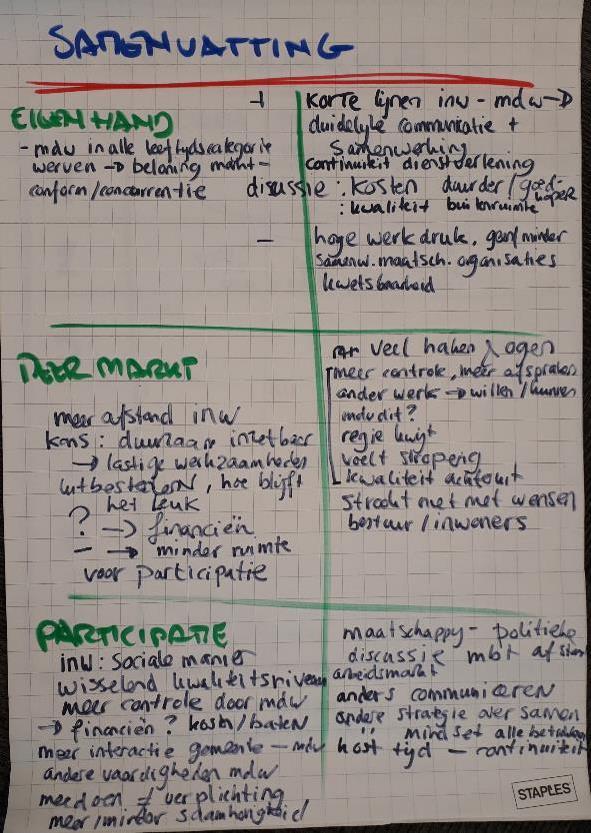 SAMENVATTING
EIGEN HAND
- mdw in alle leeftijdscategorie
werven → beloning markt-
conform/concurrentie
+ korte lijnen inw - mdw →
duidelijke communicatie +
samenwerking
continuiteit dienstverlening
discussie : kosten duurder/goed-
koper
: kwaliteit buitenruimte
- hoge werkdruk, geen/minder
samenw. maatsch. organisaties
kwetsbaarheid
MEER MARKT
meer afstand inw
kans : duurzaam inzetbaar
→ lastige werkzaamheden
uitbesteden, hoe blijft
het leuk
? → financiën
- → minder ruimte
voor participatie
veel haken & ogen
meer controle, meer afspraken
ander werk → willen/kunnen
mdw dit?
regie kwijt
voelt stroperig
kwaliteit achteruit
strookt niet met wensen
bestuur/inwoners
PARTICIPATIE
inw : sociale manier
wisselend kwaliteitsniveau
meer controle door mdw
→ financiën? kosten/baten
meer interactie gemeente - mdw
andere vaardigheden mdw
meedoen ≠ verplichting
meer/minder saamhorigheid
maatschappij - politieke
discussie mbt afstand
arbeidsmarkt
anders communiceren
andere strategie over samen
" mindset alle
kost tijd - continuiteit
STAPLES